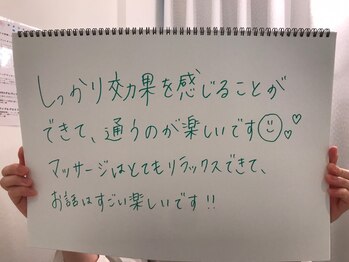 しっかり効果を感じることが
できて、通うのが楽しいです
マッサージはとてもリラックスできて、
お話はすごい楽しいです!!